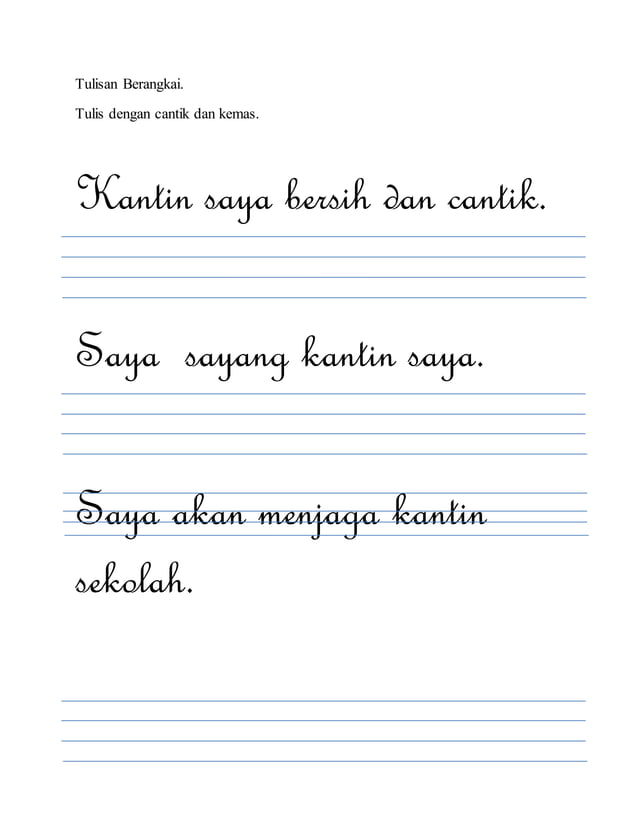 Tulisan Berangkai.
Tulis dengan cantik dan kemas.
Kantin saya bersih dan cantik.
Saya sayang kantin saya.
Saya akan menjaga kantin
sekolah.